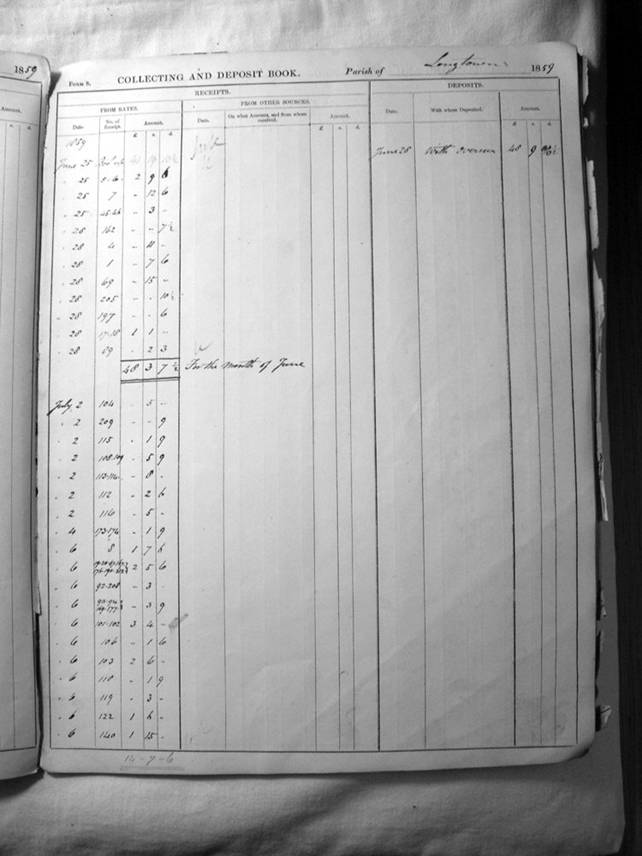 1859
Amount.
s. d.
FORM 8. COLLECTING AND DEPOSIT BOOK. Parish of Longtown 1859
RECEIPTS. DEPOSITS.
FROM RATES. FROM OTHER SOURCES.
Date. No. of Receipt. Amount. Date. On what Account, and from whom received. Amount. Date. With whom Deposited. Amount.
£ s. d. £ s. d. £ s. d.
1859
June 25 June 28 With Overseer 48 9
" 25 5.6 2 9 6
" 25 7 - 12 6
" 25 45.46 - 3 -
" 28 162 - - 7½
" 28 4 - 11 -
" 28 1 - 7 6
" 28 69 - 15 -
" 28 205 - - 10½
" 28 197 - - 6
" 28 17.18 1 1 -
" 28 59 - 2 3
48 3 7½ For the month of June
July 2 104 - 5 -
" 2 209 - - 9
" 2 115 - 1 9
" 2 108.109 - 5 9
" 2 113.114 - 8 -
" 2 112 - 2 6
" 2 116 - 5 -
" 4 173.174 - 1 9
" 6 8 1 7 6
" 6 2 5 6
" 6 92.208 - 3 -
" 6 - 3 9
" 6 101.102 3 4 -
" 6 106 - 1 6
" 6 103 2 6 -
" 6 110 - 1 9
" 6 119 - 3 -
" 6 122 1 6 -
" 6 140 1 15 -
14-7-6